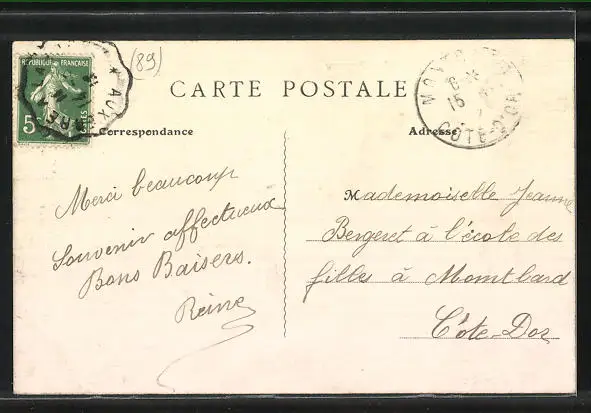 (89)
REPUBLIQUE FRANÇAISE
5
CARTE POSTALE
CÔTE-D'OR
15
Correspondance
Adresse
Merci beaucoup
Souvenir affectueux
Bons Baisers.
Reine
Mademoiselle Jeanne
Bergeret à l'école des
filles à Montbard
Côte-Dor